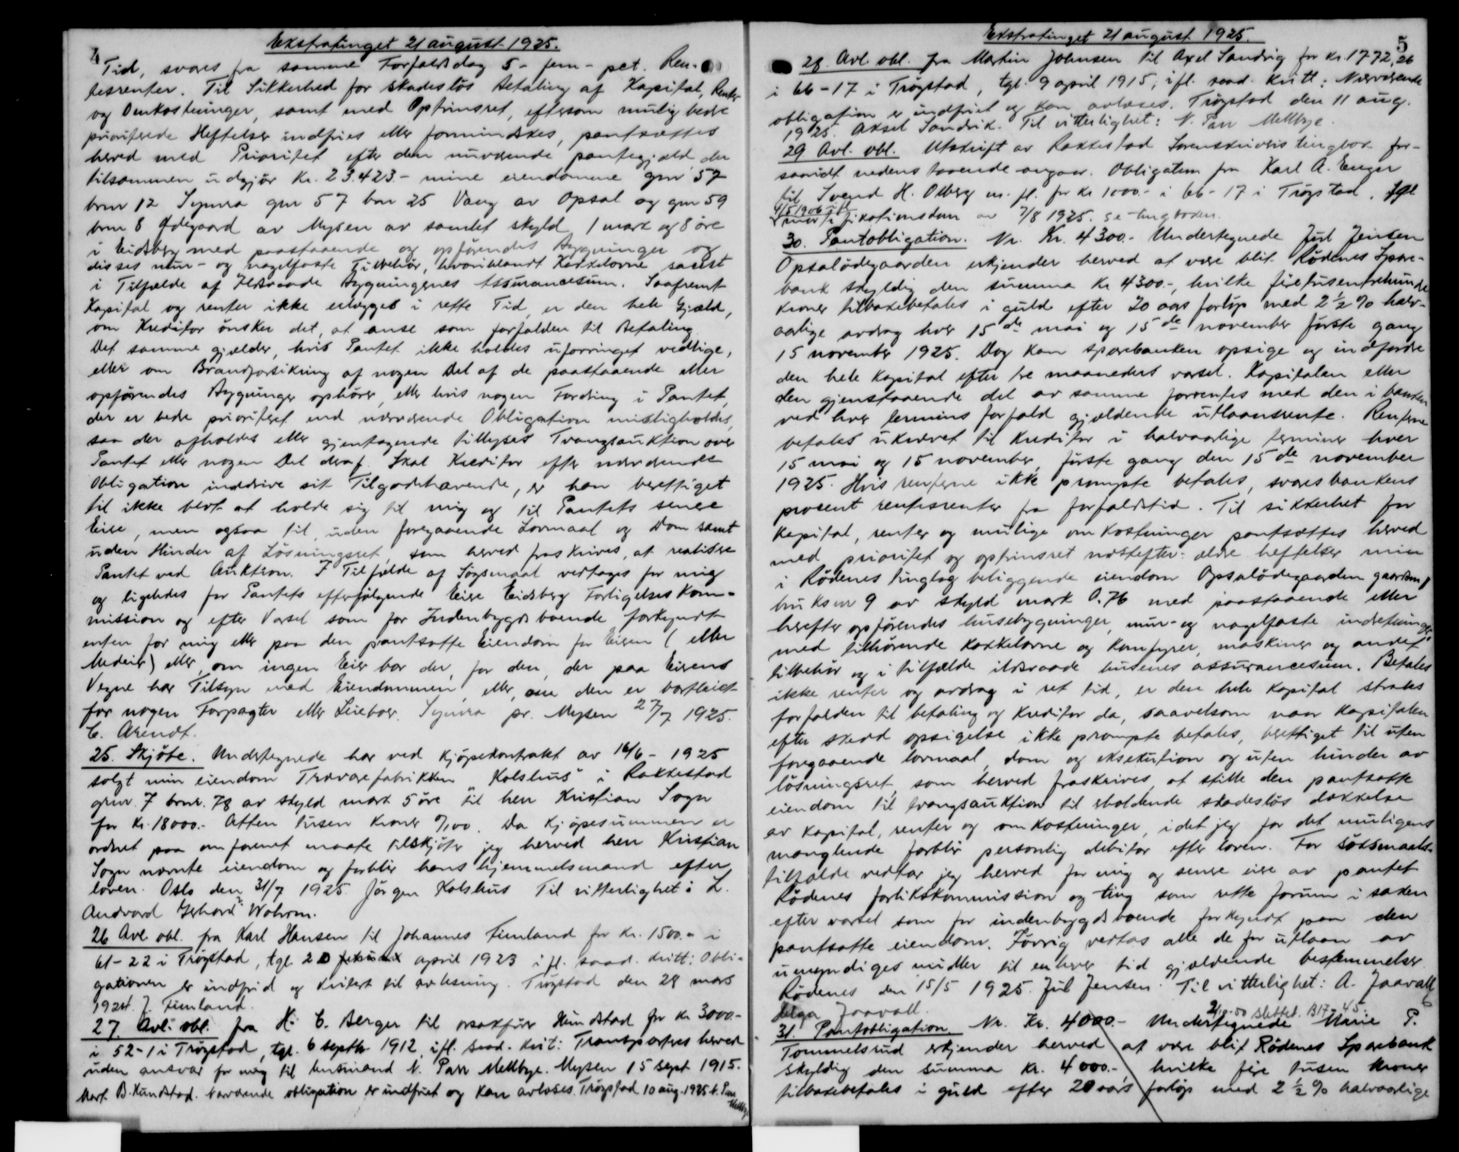 4
Ekstratinget 21 august 1925.
Tid, svares fra samme Forfaldsdag 5 - fem - pct. Ren-
tesrenter. Til Sikkerhed for skadesløs Betaling af Kapital, Renter
og Omkostninger, samt med Optrinsret, eftersom mulig bedre
prioriterede Heftelser indfries eller formindskes, pantsættes
herved med Prioritet efter den nuværende pantegjæld der
tilsammen udgjør Kr. 23.423 - mine eiendomme gnr 57
brnr 12 Synnra gnr 57 bnr 25 Vang av Opsal og gnr 59
brnr 8 Ødegaard av Mysen av samlet skyld 1 mark og 8 øre
i Eidsberg med paastaaende og opførendes Bygninger og
disses mur- og nagelfaste Tilbehør, hvoriblandt Kakkelovne samt
i Tilfælde af Ildsvaade Bygningernes Assurancesum. Saafremt
Kapital og renter ikke erlægges i rette Tid, er den hele Gjæld,
om Kreditor ønsker det, at anse som forfalden til Betaling.
Det samme gjælder, hvis Pantet ikke holdes uforringet vedlige,
eller om Brandforsikring af nogen Del af de paastaaende eller
opførendes Bygninger ophører, eller hvis nogen Fordring i Pantet,
der er bedre prioritert end nærværende Obligation misligholdes,
saa der afholdes eller gjentagende tillyses Tvangsauktion over
Pantet eller nogen Del deraf. Skal Kreditor efter nærværende
Obligation inddrive sit Tilgodehavende, er han berettiget
til ikke blot at holde sig til mig og til Pantets senere
Eiere, men ogsaa til, uden foregaaende Lovmaal og Dom samt
uden Hinder af Løsningsret, som herved fraskrives, at realisere
Pantet ved Auktion. I Tilfælde af Søgsmaal vedtages for mig
og ligeledes for Pantets efterfølgende Eiere Eidsberg Forligelseskom-
mission og efter Varsel som for Indenbygds boende forkyndt
enten for mig eller paa den pantsatte Eiendom for Eieren (eller
Medeier) eller, om ingen Eier bor der, for den, der paa Eierens
Vegne har Tilsyn med Eiendommen, eller, om den er bortleiet
for nogen Forpagter eller Leieboer. Synnra pr. Mysen 27/7 1925.
C. Arendt.
25. Skjøte. Undertegnede har ved Kjøpekontrakt av 16/6 - 1925
solgt min eiendom Trævarefabrikken "Kolshus" i Rakkestad
gnr. 7 brnr. 78 av skyld mark 5 øre til herr Kristian Sogn
for Kr. 18000.- Atten tusen kroner 0/100. Da kjøpesummen er
ordnet paa omforenet maate tilskjøter jeg herved herr Kristian
Sogn nævnte eiendom og forblir hans hjemmelsmand efter
loven. Oslo den 31/7 1925. Jørgen Kolshus Til vitterlighet: L.
Andvord Gerhard Wahrm.
26 Avl. obl. fra Karl Hansen til Johannes Fimland for Kr. 1500.- i
61-22 i Trøgstad, tgl. 20 april 1923 ifl. saad. kvitt: Obli-
gationen er indfrid og kvitert til avlæsning. Trøgstad den 28 mars
1924. J. Fimland.
27. Avl. obl. fra H. C. Berger til Hundstad for kr 3000.-
i 52-1 i Trøgstad, tgl. 6 septbr 1912, ifl. saad. kvit: Transporteres herved
uden ansvar for mig til lensmand N. Parr Mellbye. Mysen 15 sept 1915.
Mart. B. Hundstad. Nærværende obligation er indfriet og kan avlæses. Trøgstad 10 aug. 1925 N. Parr
Mellbye
5
Ekstratinget 21 august 1925.
28. Avl. obl. fra Martin Johnsen til Axel Sandvig for Kr. 1772,26
i 66-17 i Trøgstad, tgl. 9 april 1915, ifl. saad. kvitt: Nærværende
obligation er indfriet og kan avlæses. Trøgstad den 11 aug.
1925. Aksel Sandvik. Til vitterlighet: N. Parr Mellbye.
29 Avl. obl. Utskrift av Rakkestad Sorenskriveris tingbok for-
saavidt nedenstaaende angaar. Obligation fra Karl A. Enger
til Svend H. Olberg m. fl. for kr 1000.- i 66-17 i Trøgstad, tgl
4/5 1906 ifl.
mortifikationsdom av 7/8 1925. se tingboken.
30. Pantobligation. Nr. Kr. 4300.- Undertegnede Jul Jensen
Opsalødegaarden erkjender herved at være blit Rødenes Spare-
bank skyldig den summa Kr 4300.-, hvilke firetusentrehundre
kroner tilbakebetales i guld efter 20 aars forløp med 2½ % halv-
aarlige avdrag hver 15de mai og 15de november første gang
15 november 1925. Dog kan sparebanken opsige og indfordre
den hele kapital efter tre maaneders varsel. Kapitalen eller
den gjenstaaende del av samme forrentes med den i banken
ved hver termins forfald gjældende utlaansrente. Renterne
betales ukrævet til kreditor i halvaarlige terminer hver
15 mai og 15 november, første gang den 15de november
1925. Hvis renterne ikke prompte betales, svares bankens
procent rentesrenter fra forfaldstid. Til sikkerhet for
kapital, renter og mulige omkostninger pantsættes herved
med prioritet og optrinsret næstefter: ældre heftelser min
i Rødenes tinglag beliggende eiendom Opsalødegaarden gaardsnr 1
bruksnr 9 av skyld mark 0.76 med paastaaende eller
herefter opførendes husebygninger, mur- og nagelfaste indretninger
med tilhørende kakkelovne og komfyrer, maskiner og andet
tilbehør og i tilfælde ildsvaade husenes assurancesum. Betales
ikke renter og avdrag i ret tid, er den hele kapital straks
forfalden til betaling og kreditor da, saavelsom naar kapitalen
efter skedd opsigelse ikke prompte betales, berettiget til uten
foregaaende lovmaal, dom og eksekution og uten hinder av
løsningsret, som herved fraskrives, at stille den pantsatte
eiendom til tvangsauktion til erholdende skadesløs dækkelse
av kapital, renter og omkostninger, idet jeg for det muligens
manglende forblir personlig debitor efter loven. For søksmaals-
tilfælde vedtar jeg herved for mig og senere eiere av pantet
Rødenes forlikskommission og ting som rette forum i saken
efter varsel som for indenbygds boende forkyndt paa den
pantsatte eiendom. Forøvrig vedtas alle de for utlaan av
umyndiges midler til enhver tid gjældende bestemmelser.
Rødenes den 15/5 1925. Jul Jensen. Til vitterlighet: A. Jaavall
Helga Jaavall.
21/10-50 slettet. B 17-45.
31. Pantobligation Nr. Kr. 4000.- Undertegnede Marie P.
Tommelsrud erkjender herved at være blit Rødenes Sparebank
skyldig den summa Kr. 4000.- hvilke fire tusen kroner
tilbakebetales i guld efter 20 aars forløp med 2½ % halvaarlige